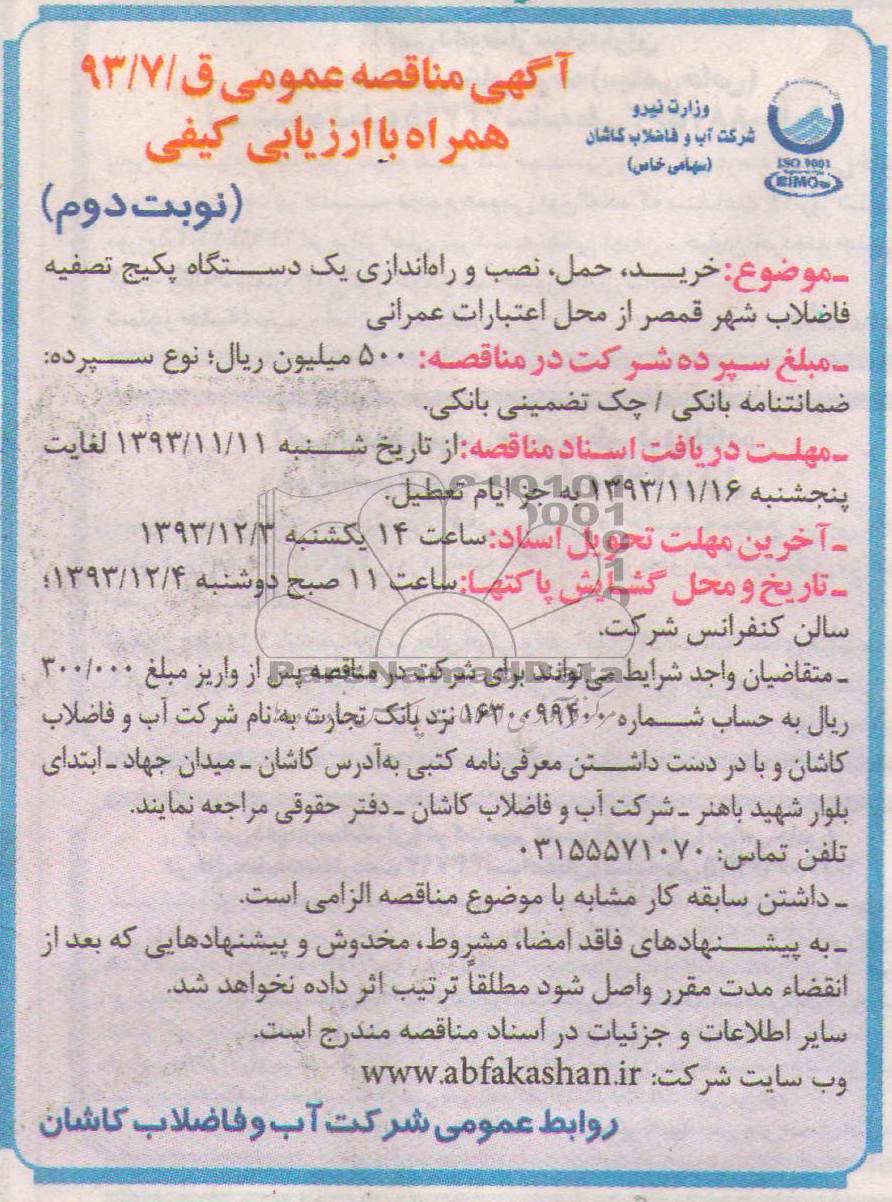 آگهی مناقصه عمومی ق/۹۳/۷
همراه با ارزیابی کیفی
وزارت نیرو
شرکت آب و فاضلاب کاشان
(سهامی خاص)
ISO 9001
(نوبت دوم)
ـ موضوع: خرید، حمل، نصب و راه‌اندازی یک دستگاه پکیج تصفیه
فاضلاب شهر قمصر از محل اعتبارات عمرانی
ـ مبلغ سپرده شرکت در مناقصه: ۵۰۰ میلیون ریال؛ نوع سپرده:
ضمانتنامه بانکی / چک تضمینی بانکی.
ـ مهلت دریافت اسناد مناقصه: از تاریخ شنبه ۱۳۹۳/۱۱/۱۱ لغایت
پنجشنبه ۱۳۹۳/۱۱/۱۶ به جز ایام تعطیل.
ـ آخرین مهلت تحویل اسناد: ساعت ۱۴ یکشنبه ۱۳۹۳/۱۲/۳
ـ تاریخ و محل گشایش پاکتها: ساعت ۱۱ صبح دوشنبه ۱۳۹۳/۱۲/۴؛
سالن کنفرانس شرکت.
ـ متقاضیان واجد شرایط می‌توانند برای شرکت در مناقصه پس از واریز مبلغ ۳۰۰/۰۰۰
ریال به حساب شماره ۱۶۳۰۰۹۹۴۰۰ نزد بانک تجارت به نام شرکت آب و فاضلاب
کاشان و با در دست داشتن معرفی‌نامه کتبی به‌آدرس کاشان ـ میدان جهاد ـ ابتدای
بلوار شهید باهنر ـ شرکت آب و فاضلاب کاشان ـ دفتر حقوقی مراجعه نمایند.
تلفن تماس: ۰۳۱۵۵۵۷۱۰۷۰
ـ داشتن سابقه کار مشابه با موضوع مناقصه الزامی است.
ـ به پیشنهادهای فاقد امضا، مشروط، مخدوش و پیشنهادهایی که بعد از
انقضاء مدت مقرر واصل شود مطلقاً ترتیب اثر داده نخواهد شد.
سایر اطلاعات و جزئیات در اسناد مناقصه مندرج است.
وب سایت شرکت: www.abfakashan.ir
روابط عمومی شرکت آب و فاضلاب کاشان
ParsNamadData